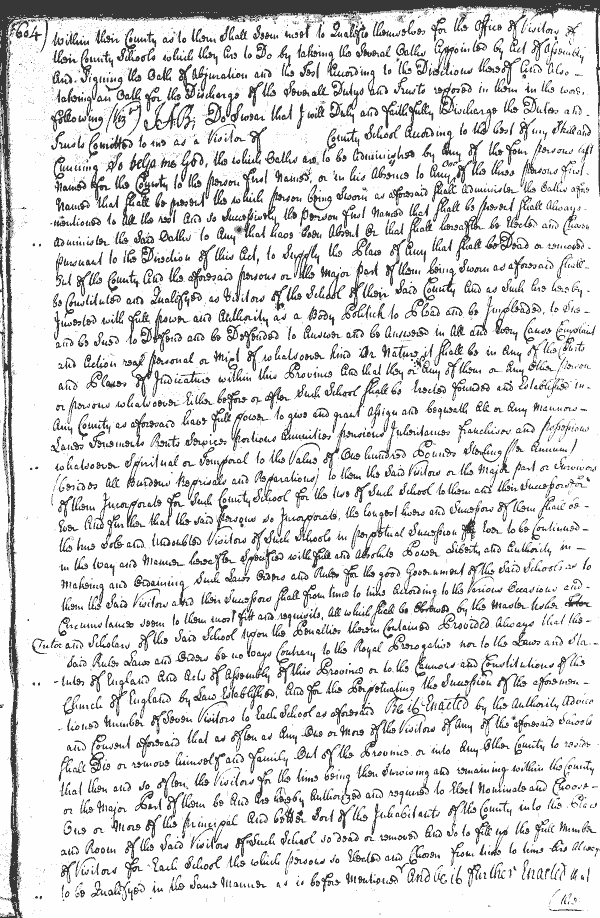 604)
Within their County as to them Shall Seem meet to Qualifie themselves for the Office of Visitors of
their County Schools which they are to Do by takeing the Several Oaths Appointed by Act of Assembly
And Signing the Oath of Abjuration and the Test According to the Directions thereof And Also
takeing an Oath for the Discharge of the Severall Dutys and Trusts reposed in them in the words
following (viz) I A.B. Do Swear that I will Duly and faithfully Discharge the Duties and
Trusts Comitted to me as a Visitor of County School According to the best of my Skill and
Cunning So help me God, the which Oaths are to be Administred by Any of the four persons last
Named for the County to the person First Named, or in his Absence to Any One of the three persons first
Named that shall be present the which person being Sworn as aforesaid shall Administer the Oaths afore
mentioned to All the rest And so Successively the person first Named that Shall be present shall Always
Administer the Said Oaths to Any that have been Absent Or that shall hereafter be Elected and Chosen
pursuant to the Direction of this Act, to Supply the Place of Any that shall be Dead or removed
Out of the County And the aforesaid persons or the Major part of them being Sworn as aforesaid Shall
be Constituted and Qualifyed as Visitors of the School of their Said County And as Such are hereby
Invested with full power and Authority as a Body Politick to Plead and be Impleaded, to Sue
and be Sued to Defend and be Defended to Answer and be Answered in All and Every Cause Complaint
and Action real personal or Mixt of whatsoever kind Or Nature it shall be in Any of the Courts
and Places of Judicature within this Province And that they or Any of them or Any Other person
or persons whatsoever Either before or after Such School shall be Erected founded and Established in
Any County as aforesaid have full power to give and grant Assign and bequeath All or Any Mannors
Lands Tenements Rents Services portions Annuities pensions Inheritances franchises and possessions
whatsoever Spiritual or Temporal to the Value of One hundred Pounds Sterling (per Annum)
(besides All Burdens Reprisals and Reparations) to them the Said Visitors or the Major part or Survivors
of them Incorporate for Such County School for the Use of Such School to them and their Successors for
Ever And further that the Said Persons so Incorporate, the longest livers and Successors of them shall be
the true Sole and Undoubted Visitors of Such Schools in perpetual Succession for Ever to be Continued
in the Way and Manner hereafter Specified with full and Absolute Power Liberty and Authority in
Makeing and Ordaining Such Laws Orders and Rules for the good Government of the Said Schools as to
them the Said Visitors and their Successors shall from time to time According to the Various Occasions and
Circumstances seem to them most fit and requisite, All which shall be Observed by the Master Usher
Tutor and Scholars of the Said School Upon the Penalties therein Contained Provided Always that the
Said Rules Laws and Orders be no ways Contrary to the Royal Prerogative nor to the Laws and Sta
tutes of England And Acts of Assembly of this Province or to the Cannons and Constitutions of the
Church of England by Law Established, And for the Perpetuating the Succession of the aforemen
tioned Number of Seven Visitors to Each School as aforesaid Be it Enacted by the Authority Advice
and Consent aforesaid that as often as Any One or More of the Visitors of Any of the aforesaid Schools
shall Die or remove himself and Family Out of the Province or into Any Other County to reside
that then and so often the Visitors for the time being then Surviving and remaining within the County
or the Major Part of them be And are hereby Authorized and required to Elect Nominate and Choose
One or More of the principal And better Sort of the Inhabitants of the County into the Place
and Room of the Said Visitors of Such School so dead or removed And so to fill up the full Number
of Visitors for Each School the which persons so Elected and Chosen from time to time are Always
to be Qualifyed in the Same Manner as is before Mentioned And be it Further Enacted that